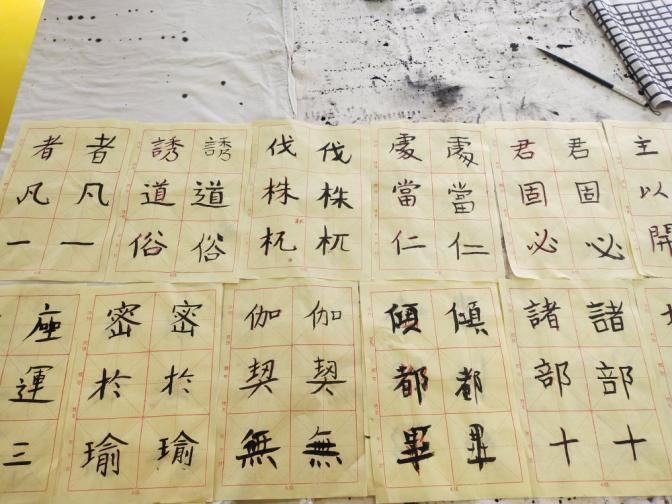 者 者 誘 誘 伐 伐 處 處 君 君 主
凡 凡 道 道 株 株 當 當 固 固 以
一 一 俗 俗 杌 杌 仁 仁 必 必 開
座 密 密 伽 伽 傾 傾 諸 諸
運 於 於 契 契 都 都 部 部
三 瑜 瑜 無 無 畢 畢 十 十